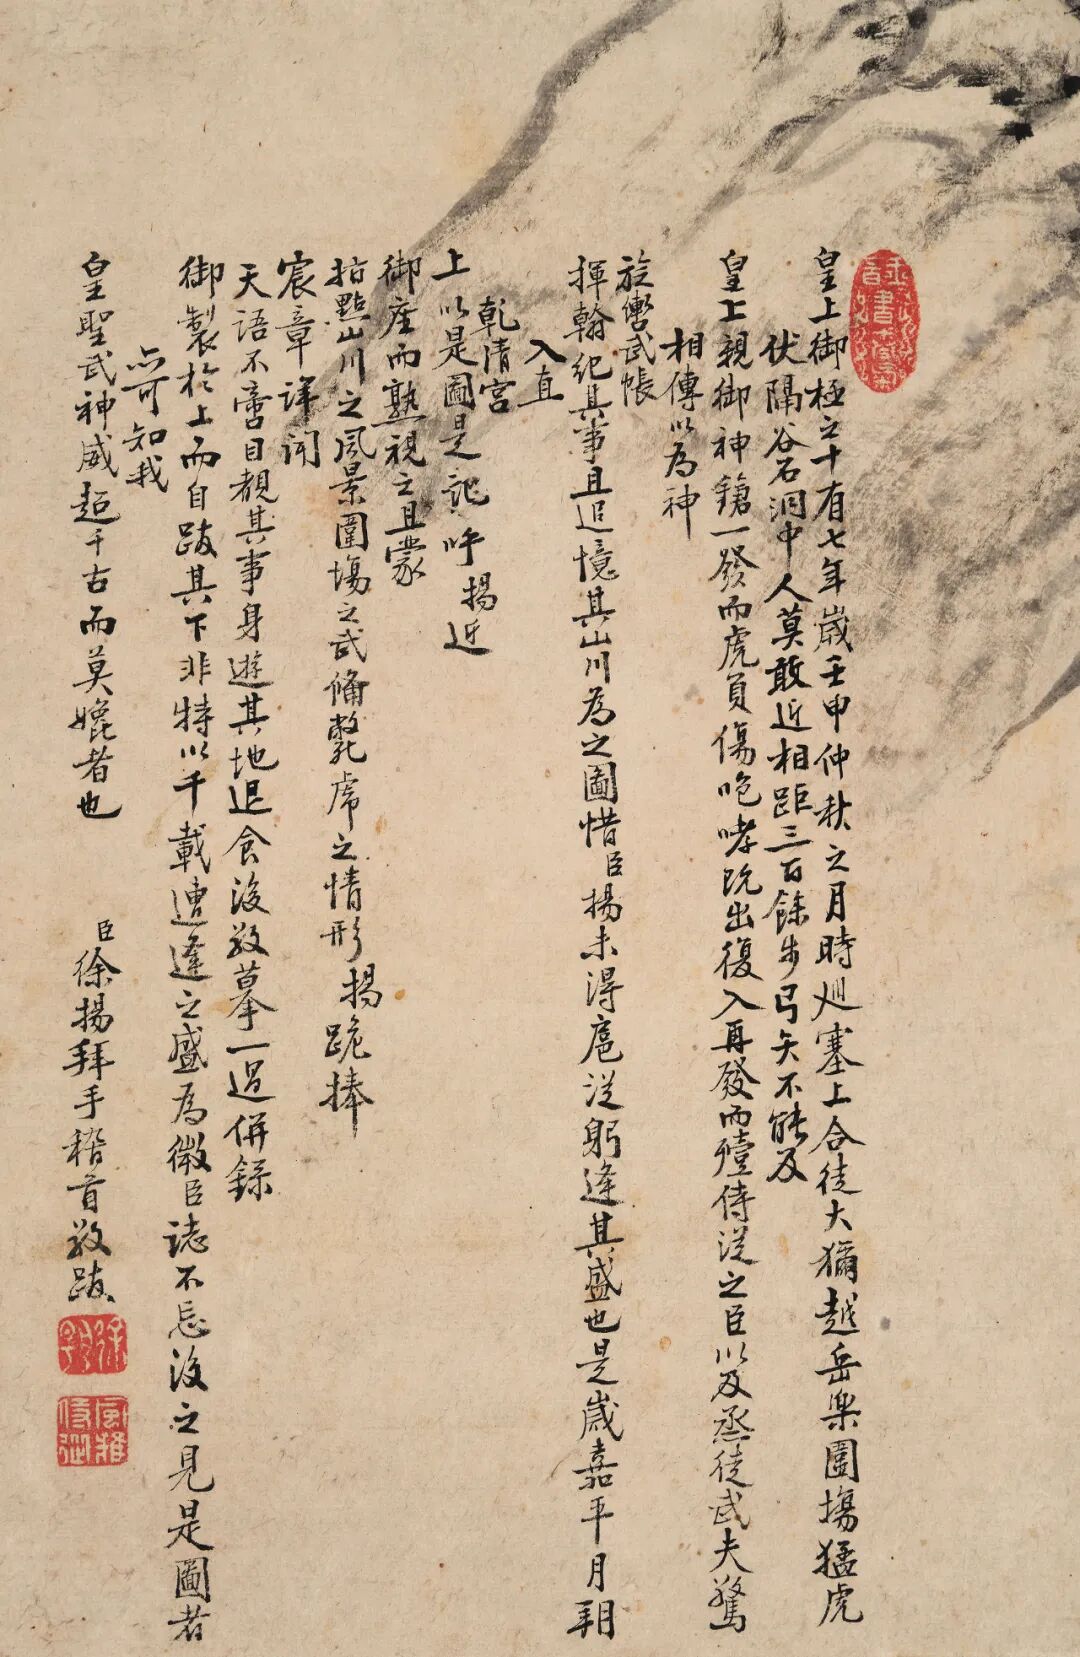 皇上御極之十有七年歲壬申仲秋之月時廵塞上合徒大獮越岳樂圍塲猛虎
伏隔谷石洞中人莫敢近相距三百餘步弓矢不能及
皇上親御神鎗一發而虎負傷咆哮既出復入再發而殪侍從之臣以及烝徒武夫驚
相傳以為神
旋轡武帳
揮翰紀其事且追憶其山川為之圖惜臣揚未得扈從躬逢其盛也是歲嘉平月朔
入直
乾清宮
上以是圖是記呼揚近
御座而熟視之且蒙
指點山川之風景圍塲之武備斃虎之情形揚跪捧
宸章詳聞
天語不啻目覩其事身遊其地退食後敬摹一過併錄
御製於上而自跋其下非特以千載遭逢之盛為微臣誌不忘後之見是圖者
亦可知我
皇聖武神威超千古而莫媲者也
臣徐揚拜手稽首敬跋